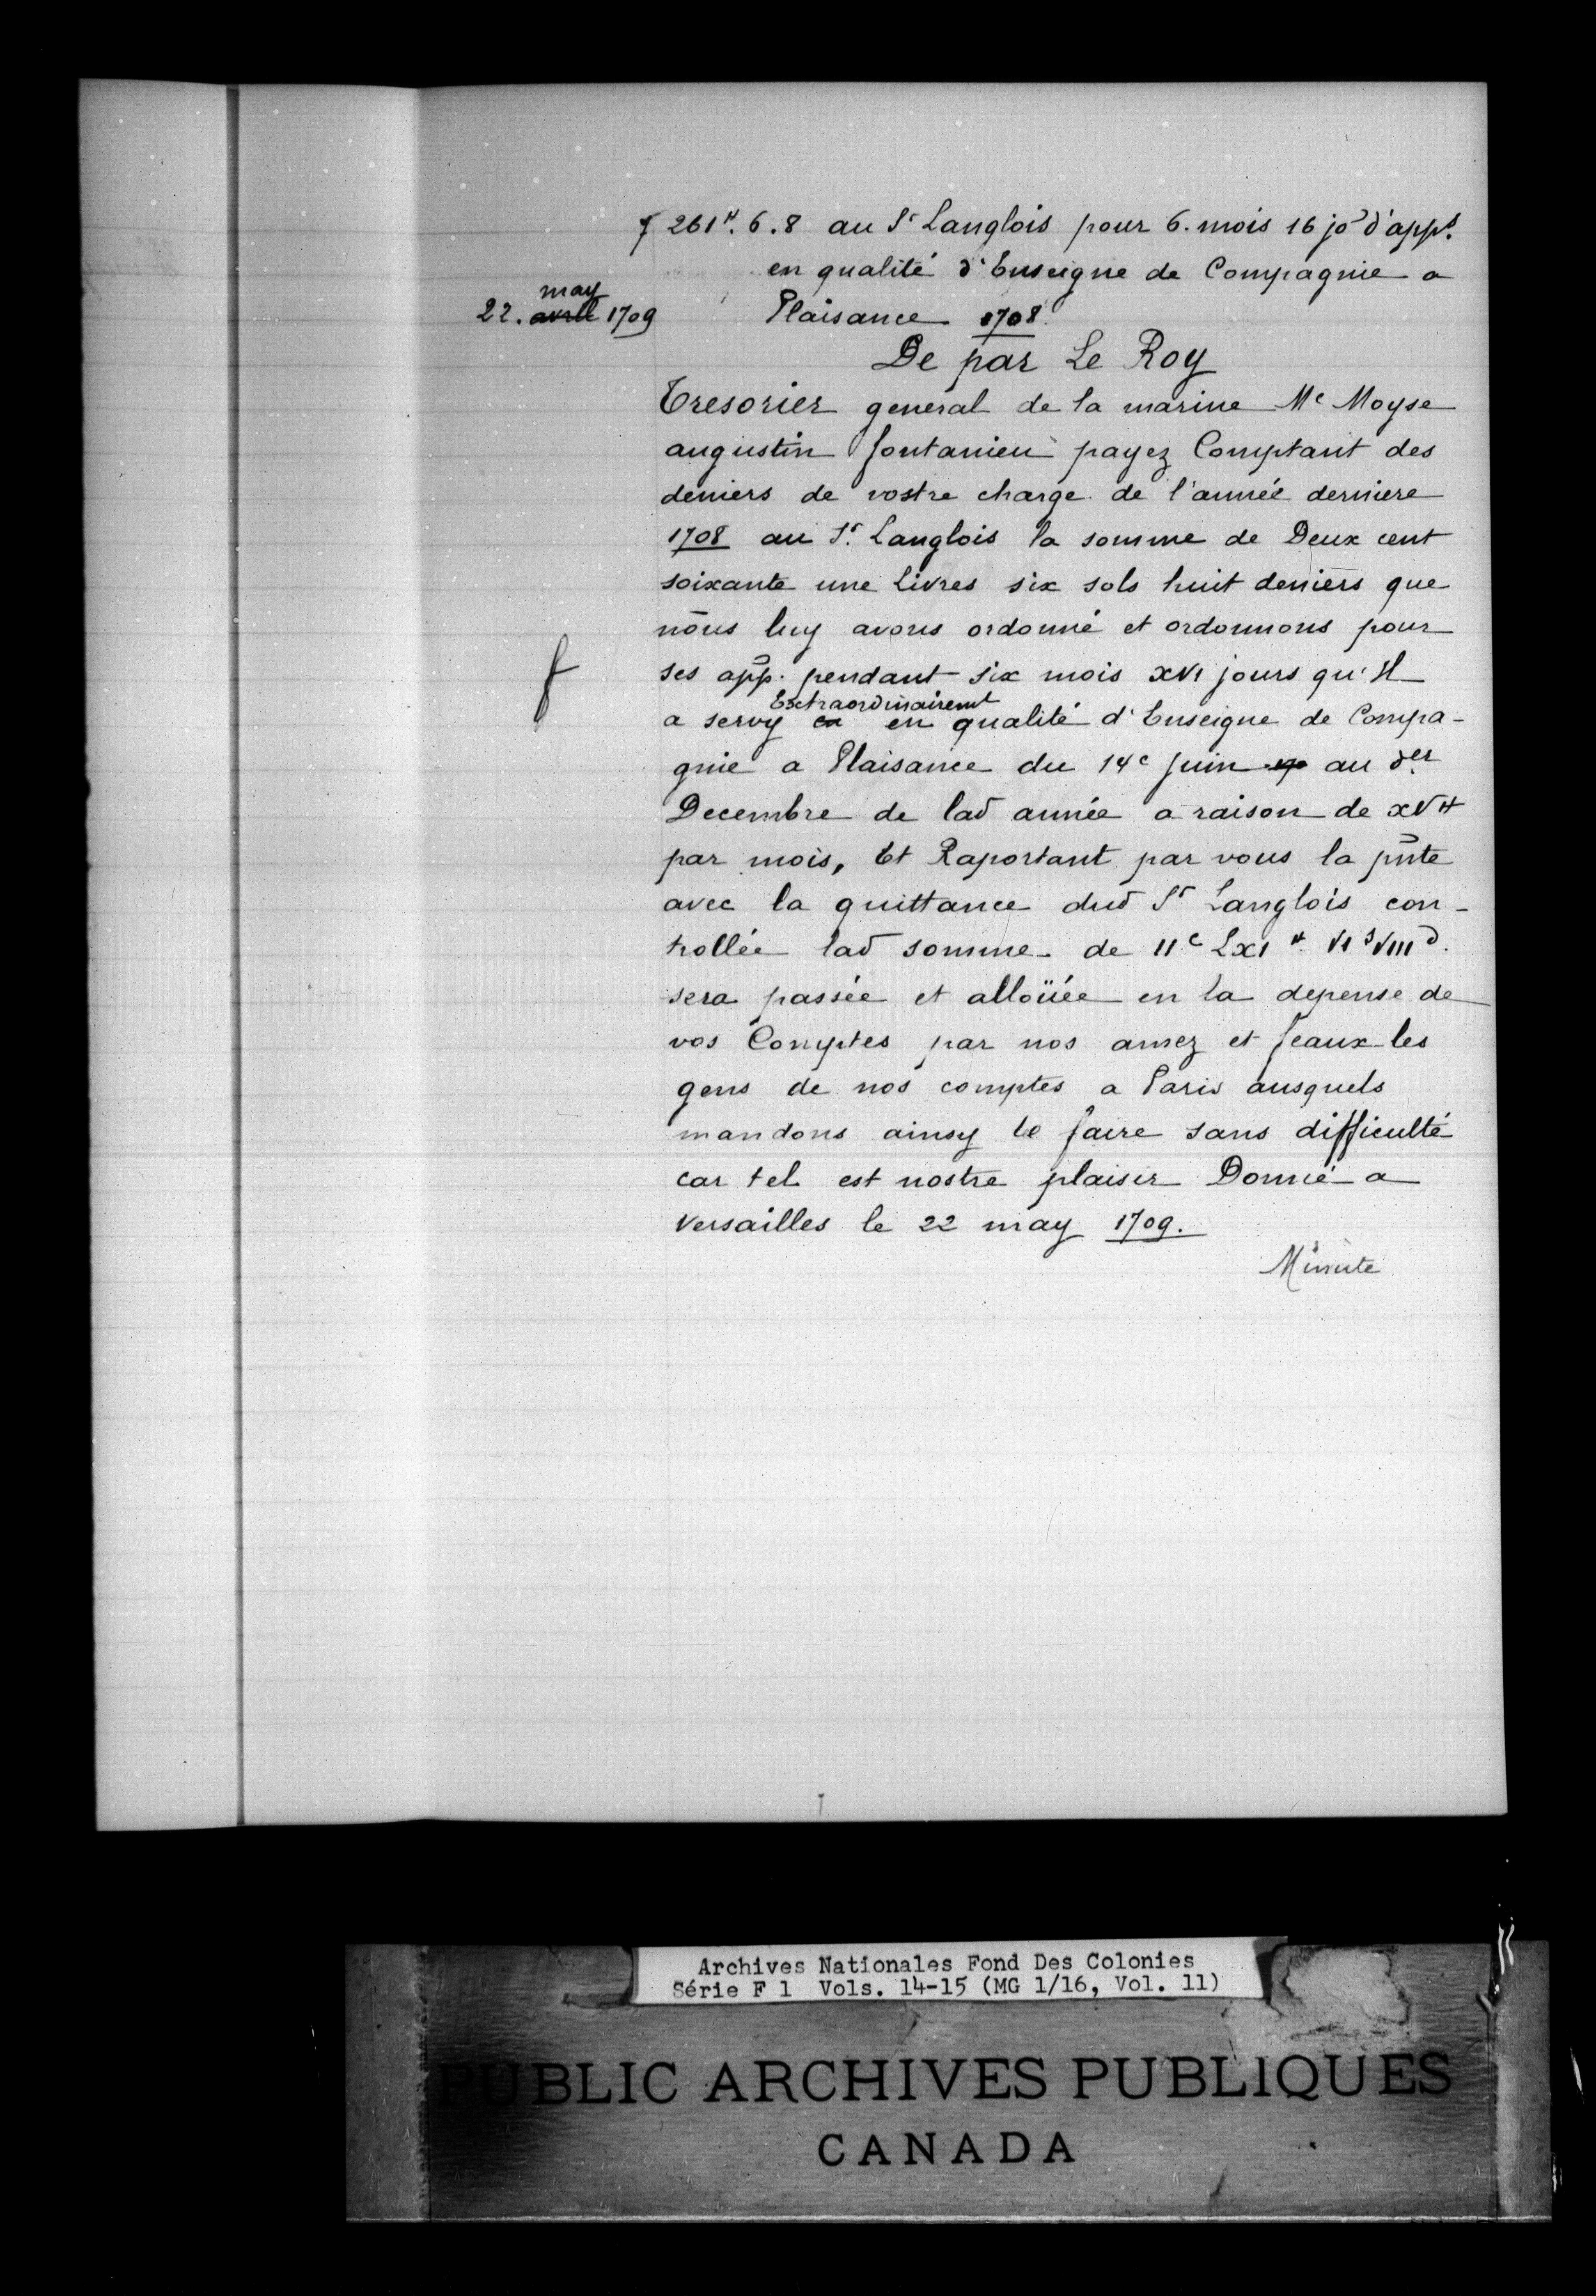 261ᴴ. 6. 8 au Sʳ Langlois pour 6. mois 16 jo d'appˢ.
en qualité d'Enseigne de Compagnie a
Plaisance 1708.
may
22. avril 1709
De par Le Roy
Tresorier general de la marine Mᵉ Moyse
augustin fontanieu payez Comptant des
deniers de vostre charge de l'année derniere
1708 au Sʳ. Langlois la somme de Deux cent
soixante une Livres six sols huit deniers que
nous luy avons ordonné et ordonnons pour
ses app. pendant six mois XVI jours qu'Il
Extraordinairemt
a servy en en qualité d'Enseigne de Compa-
gnie a Plaisance du 14ᵉ Juin au dᵉʳ
Decembre de lad année a raison de XVᴴ
par mois, Et Raportant par vous la pñte
avec la quittance dud Sʳ Langlois con-
trollée lad somme de IIᶜ LXIᴴ VIˢ VIIIᵈ.
sera passée et alloüée en la depense de
vos Comptes par nos amez et feaux les
gens de nos comptes a Paris ausquels
mandons ainsy le faire sans difficulté
car tel est nostre plaisir Donné a
Versailles le 22 may 1709.
Minute
Archives Nationales Fond Des Colonies
Série F 1 Vols. 14-15 (MG 1/16, Vol. 11)
PUBLIC ARCHIVES PUBLIQUES
CANADA